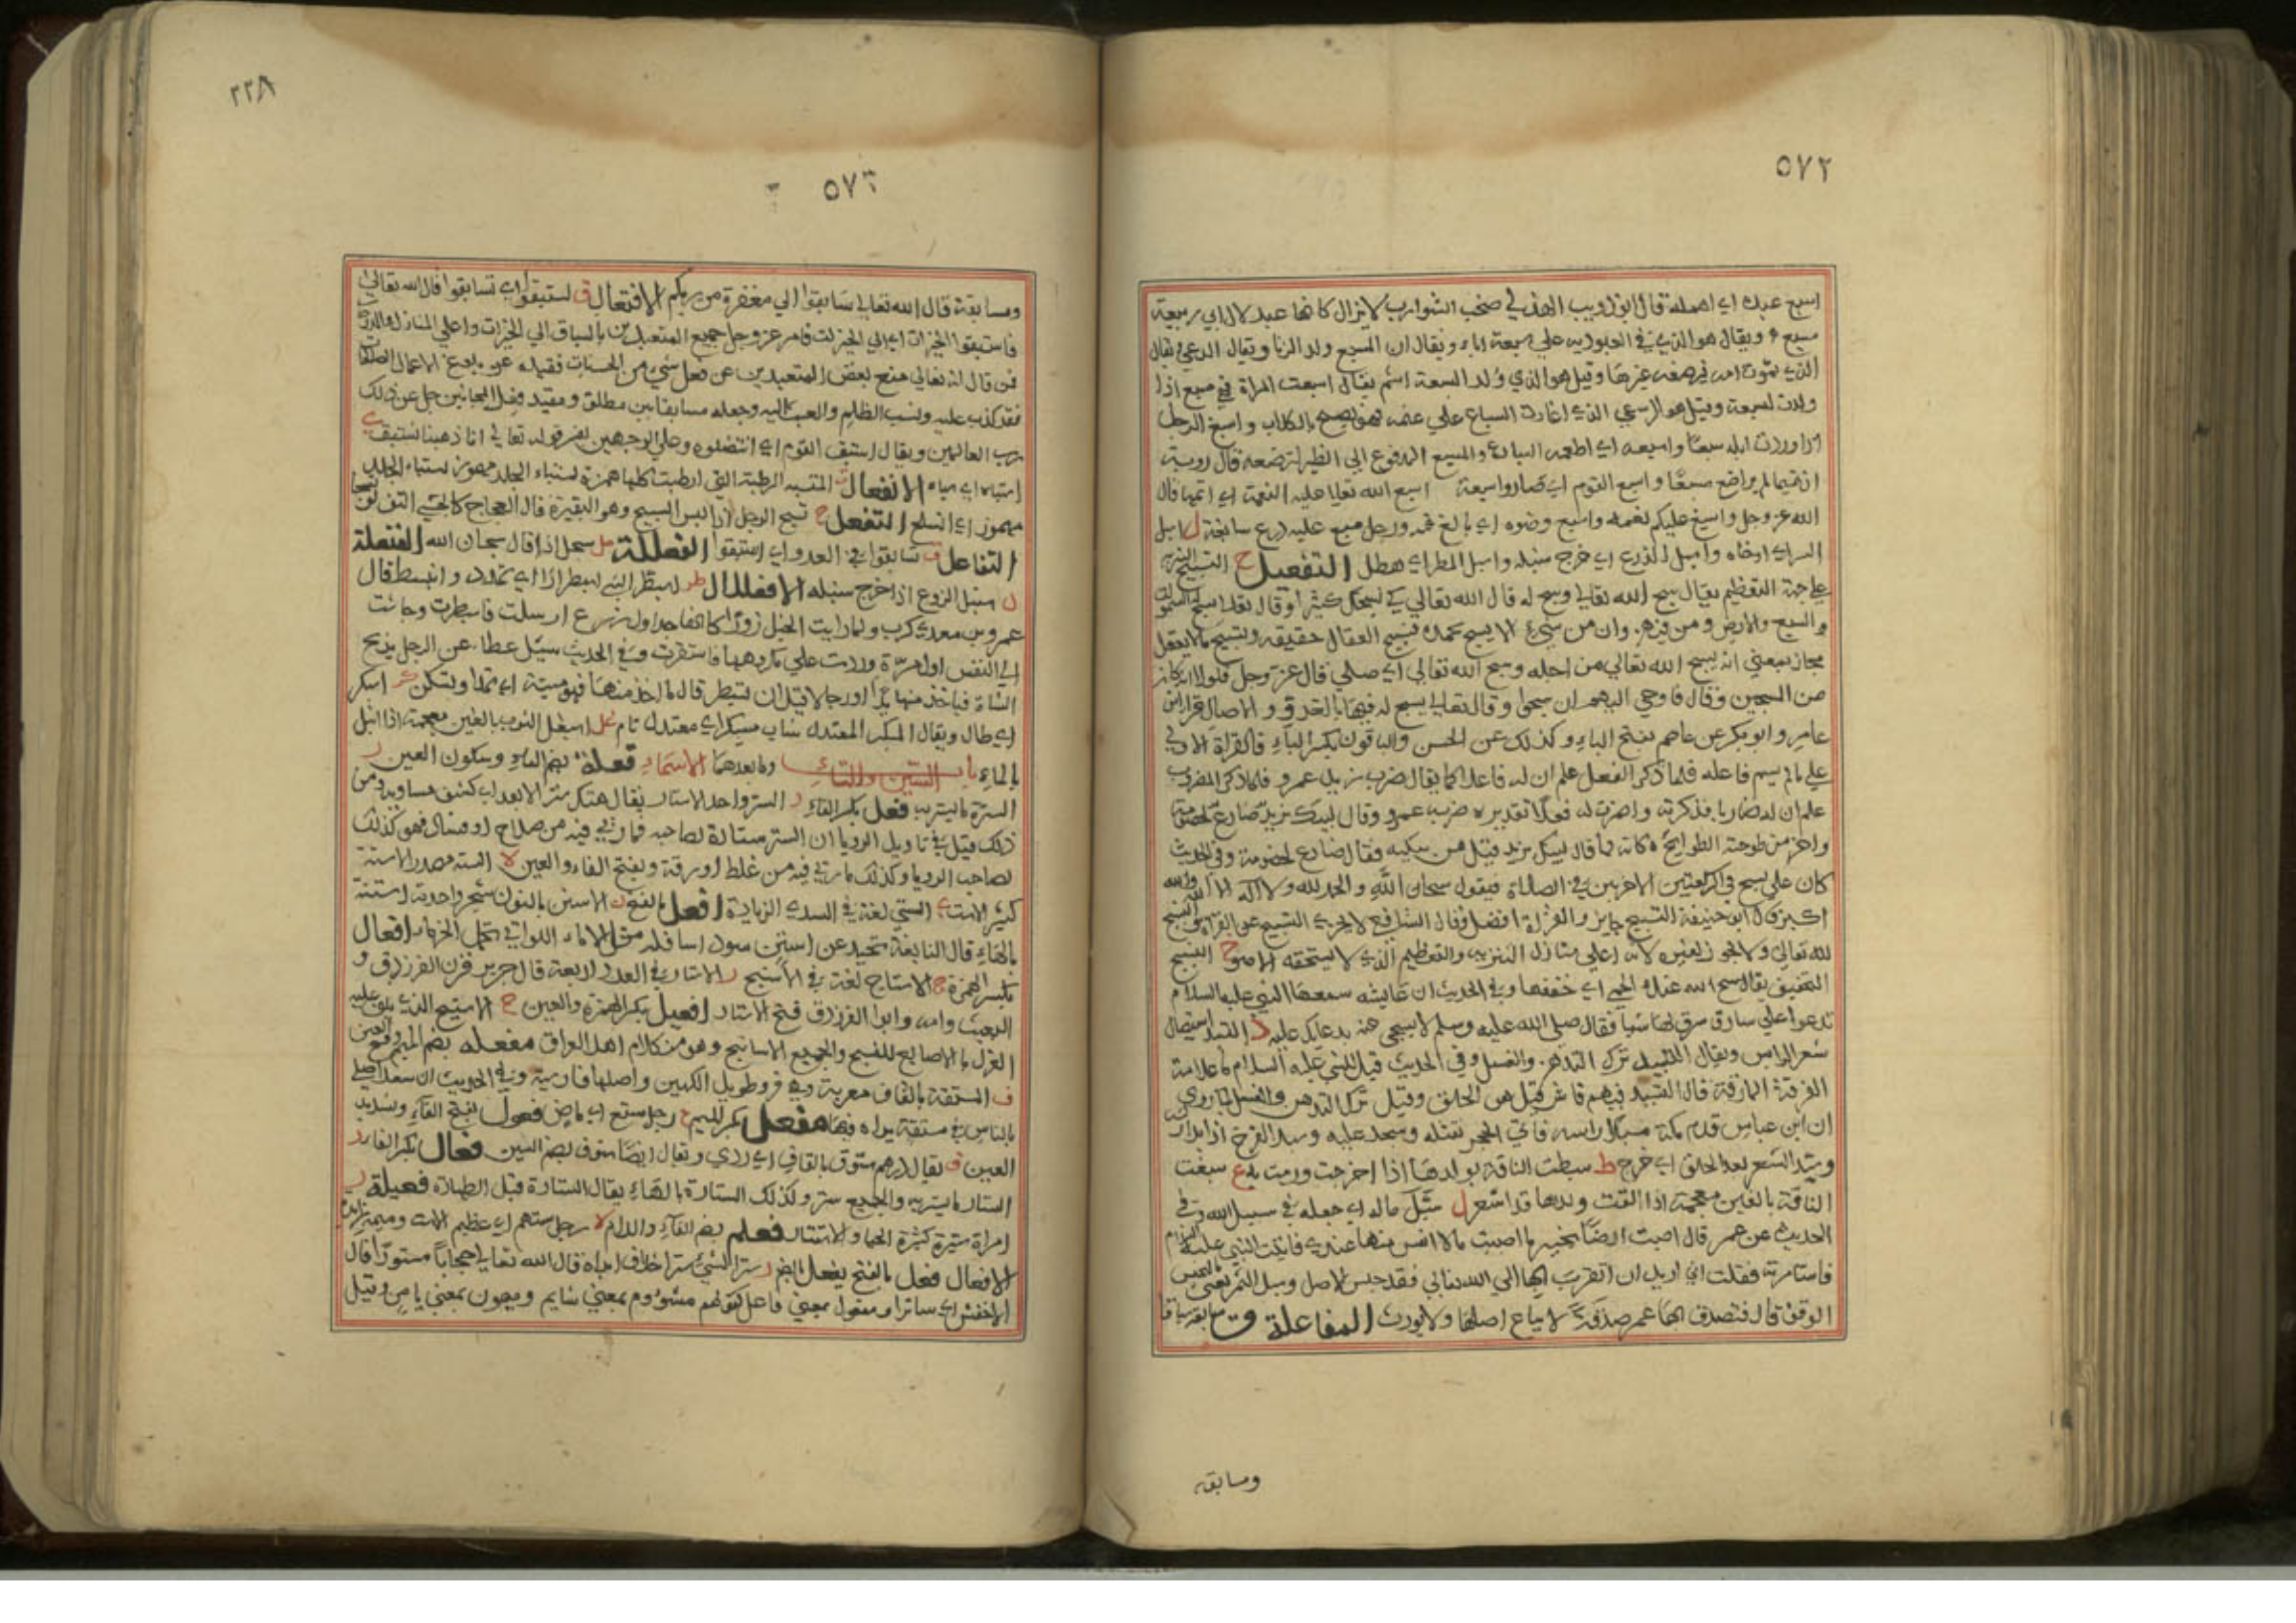 ٥٧٢
اسبع عبدك اي اهمله قال ابو ذويب الهذلي صخب الشوارب لا يزال كانها عبد لال ابي ربيعة
مسبع ويقال هو الذي في العبودية علي سبعة اباء ويقال ان المسبع ولد الزنا ويقال الدعي ويقال
الذي تموت امه فيرضعه غيرها وقيل هو الذي ولد لسبعة اشهر يقال اسبعت المراة فهي مسبع اذا
ولدت لسبعة وقيل هو الراعي الذي اغارت السباع علي غنمه فهو يصيح بالكلاب واسبع الرجل
اذا وردت ابله سبعا واسبعه اي اطعمه السباع والمسبع المدفوع الي الظير لترضعه قال روبة
ان تميما لم يراضع مسبعا واسبع القوم اي صاروا سبعة اسبغ الله تعالي عليه النعمة اي اتمها قال
الله عز وجل واسبغ عليكم نعمه واسبغ وضوه اي بالغ فيه ورجل مسبغ عليه درع سابغة ل اسبل
الستر اي ارخاه واسبل الزرع اي خرج سنبله واسبل المطر اي هطل التفعيل ح التسبيح التنزيه
علي جهة التعظيم يقال سبح الله تعالي وسبح له قال الله تعالي كي نسبحك كثيرا وقال تعالي تسبح له السموات
والسبع والارض ومن فيهن وان من شيء الا يسبح بحمده فتسبيح العقال حقيقة وتسبيح ما لا يعقل
مجاز بمعني انه يسبح الله تعالي من اجله وسبح الله تعالي اي صلي قال عز وجل فلولا انه كان
من المسبحين وقال فاوحي اليهم ان سبحوا وقال تعالي يسبح له فيها بالغدو والاصال قرا ابن
عامر وابو بكر عن عاصم بفتح الباء وكذلك عن الحسن والباقون بكسر الباء فالقراة الاولي
علي ما لم يسم فاعله فلما ذكر الفعل علم ان له فاعلا كما يقال ضرب زيد عمرو فلما ذكر المضروب
علم ان له ضاربا فذكرته واضمرت له فعلا تقديره ضربه عمرو وقال ليبك يزيد ضارع لخصومة
واخر من طوحته الطوايح كانه لما قال ليبك يزيد قيل من يبكيه فقال ضارع لخصومة وفي الحديث
كان علي يسبح في الركعتين الاخريين في الصلاة فيقول سبحان الله والحمد لله ولا اله الا الله والله
اكبر قال ابو حنيفة التسبيح جايز والقراة افضل وقال الشافعي لا يجزي التسبيح عن القراة والتسبيح
لله تعالي ولا يجوز لغيره لانه اعلي منازل التنزيه والتعظيم الذي لا يستحقه الا هو خ التسبيخ
التخفيف يقال سبخ الله عنك الحمي اي خففها وفي الحديث ان عايشة سمعها النبي عليه السلام
تدعوا علي سارق سرق لها شيا فقال صلي الله عليه وسلم لا تسبخي عنه بدعايك عليه د التسبيد استيصال
شعر الراس ويقال التسبيد ترك التدهن والغسل وفي الحديث قيل للنبي عليه السلام ما علامة
الفرقة المارقة قال التسبيد فيهم فاش قيل هو الحلق وقيل ترك التدهن والغسل لما روي
ان ابن عباس قدم مكة مسبدا راسه فاتي الحجر فقبله وسجد عليه وسبد الفرخ اذا بدا ريشه
وسبد الشعر بعد الحلق اي خرج ط سبطت الناقة بولدها اذا اخرجت ورمت به غ سبغت
الناقة بالغين معجمة اذا القت ولدها قد اشعر ل سبل ماله اي جعله في سبيل الله وفي
الحديث عن عمر قال اصبت ارضا بخيبر ما اصبت مالا انفس منها عندي فاتيت النبي عليه السلام
فاستامرته فقلت اني اريد ان اتقرب بها الي الله تعالي فقد حبس الاصل وسبل الثمر يعني بالحبس
الوقف قال فتصدق بها عمر صدقة لا يباع اصلها ولا يورث المفاعلة ق سابقه سباقا
ومسابقه
٢٢٨
٥٧٣
ومسابقة قال الله تعالي سابقوا الي مغفرة من ربكم الافتعال ق استبقوا اي تسابقوا قال الله تعالي
فاستبقوا الخيرات اي الي الخيرات فامر عز وجل جميع المتعبدين بالسباق الي الخيرات واعلي المنازل والدرجات
فمن قال انه تعالي منع بعض المتعبدين عن فعل شيء من الحسنات فقيده عن بلوغ الاعمال الصالحات
فقد كذب عليه ونسب الظلم والعبث اليه وجعله مسابقا بين مطلق ومقيد وفعل المجانين جل عن ذلك
رب العالمين ويقال استبق القوم اي انتضلوه وعلي الوجهين يفسر قوله تعالي انا ذهبنا نستبق
الانفعال
مهموز اي انسلخ التفعل ج تسبج الرجل اذا لبس السبيج وهو البقيرة قال العجاج كالحبشي التف او تسبجا
التفاعل ق تسابقوا في العدو اي استبقوا الفعللة حل سبحل اذا قال سبحان الله الفنعلة
ل سنبل الزرع اذا خرج سنبله الافعلال طر اسبطر الشي اسبطرارا اي تمدد وانبسط قال
عمرو بن معدي كرب ولما رايت الخيل زورا كانها جداول زرع ارسلت فاسبطرت وجاشت
الي النفس اول مرة وردت علي مكروهها فاستقرت وفي الحديث سيل عطا عن الرجل يذبح
الشاة فياخذ منها يدا او رجلا قبل ان تسبطر قال ما اخذ منها فهو ميتة اي تمتد وتسكن كر اسبكر
اي طال ويقال المسبكر المعتدل شاب مسبكر اي معتدل تام غل اسبغل الثوب بالغين معجمة اذا ابتل
بالماء باب السين والتاء وما بعدهما الاسماء فعلة بضم الفاء وسكون العين ر
السترة ما يستر به فعل بكسر الفاء ر الستر واحد الاستار يقال هتك ستر الابعد اي كشف مساويه ومن
ذلك قيل في تاويل الرويا ان الستر ستارة لصاحبه فما ريي فيه من صلاح او فساد فهو كذلك
لصاحب الرويا وكذلك ما ريي فيه من غلظ او رقة وبفتح الفاء والعين ه السته مصدر الاسته
كبير الاست ي الستي لغة في السدي الزيادة افعل بالفتح ن الاستن بالنون شجر واحدته استنة
بالهاء قال النابغة تحيد عن استن سود اسافله مثل الاماء اللواتي تحمل الحزما افعال
بكسر الهمزة ج الاستاج لغة في الاستيج ر الاستار في العدد اربعة قال جرير قرن الفرزدق و
البعيث وامه وابوا الفرزدق قبح الاستار افعيل بكسر الهمزة والعين ج الاستيج الذي يلف عليه
الغزل بالاصابع للنسج والجميع الاساتيج وهو من كلام اهل العراق مفعلة بضم الميم وفتح العين
ق المستقة بالقاف معربة وهي فرو طويل الكمين واصلها فارسية وفي الحديث ان سعدا صلي
بالناس في مستقة يداه فيها مفعل بكسر الميم ع رجل مستع اي ماض فعول بفتح الفاء وتشديد
العين ق يقال درهم ستوق بالقاف اي ردي ويقال ايضا ستوق بضم السين فعال بكسر الفاء ر
الستار ما يستر به والجميع ستر وكذلك الستارة بالهاء يقال الستارة قبل الصلاة فعيلة ر
امراة ستيرة كثيرة الحيا والاستتار فعلم بضم الفاء واللام ه رجل ستهم اي عظيم الاست وميمه زايدة
الافعال فعل بالفتح يفعل بالضم ر ستر الشي سترا خلاف ابداه قال الله تعالي حجابا مستورا قال
الاخفش اي ساترا ومفعول بمعني فاعل كقولهم مشووم بمعني شايم وميمون بمعني يامن وقيل